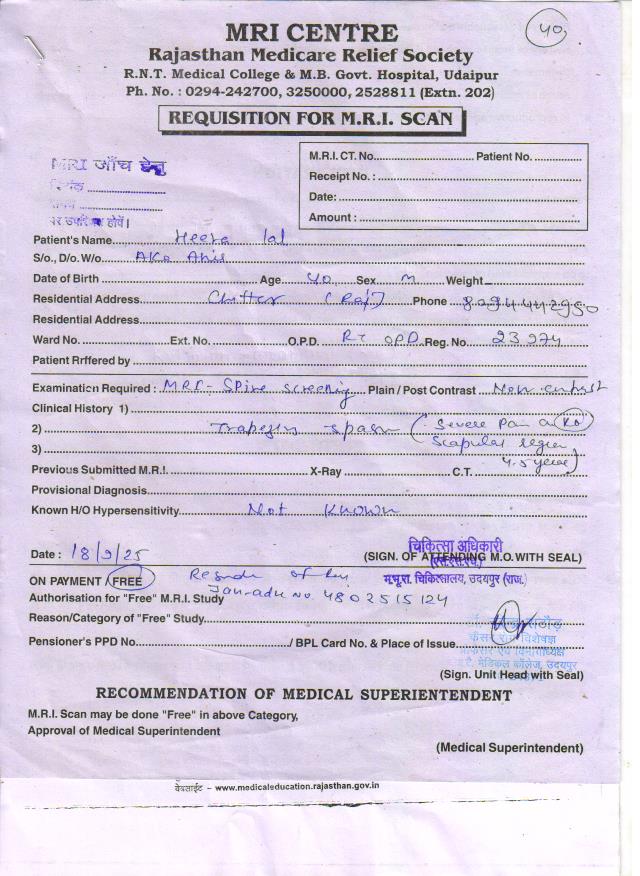 40
MRI CENTRE
Rajasthan Medicare Relief Society
R.N.T. Medical College & M.B. Govt. Hospital, Udaipur
Ph. No. : 0294-242700, 3250000, 2528811 (Extn. 202)
REQUISITION FOR M.R.I. SCAN
MRI जाँच हेतु
M.R.I.CT. No. Patient No.
Receipt No. :
Date:
Amount :
पर होवें।
Patient's Name Heera lal
S/o., D/o. W/o
Date of Birth Age 40 Sex M Weight
Residential Address (Raj) Phone
Residential Address
Ward No. Ext. No. O.P.D. RT OPD Reg. No. 23974
Patient Rrffered by
Examination Required : MRI- Spine screening Plain / Post Contrast Non
Clinical History 1)
2) spasm (Severe Pain
3) Scapular region
4.5 year)
Previous Submitted M.R.I. X-Ray C.T.
Provisional Diagnosis
Known H/O Hypersensitivity Not Known
चिकित्सा अधिकारी
Date : 18/9/25 (SIGN. OF ATTENDING M.O. WITH SEAL)
ON PAYMENT / FREE म.भू.रा. चिकित्सालय, उदयपुर (राज.)
Authorisation for "Free" M.R.I. Study Jan-adh No 4802515124
Reason/Category of "Free" Study
Pensioner's PPD No. / BPL Card No. & Place of Issue
(Sign. Unit Head with Seal)
RECOMMENDATION OF MEDICAL SUPERIENTENDENT
M.R.I. Scan may be done "Free" in above Category,
Approval of Medical Superintendent
(Medical Superintendent)
वेबसाईट - www.medicaleducation.rajasthan.gov.in